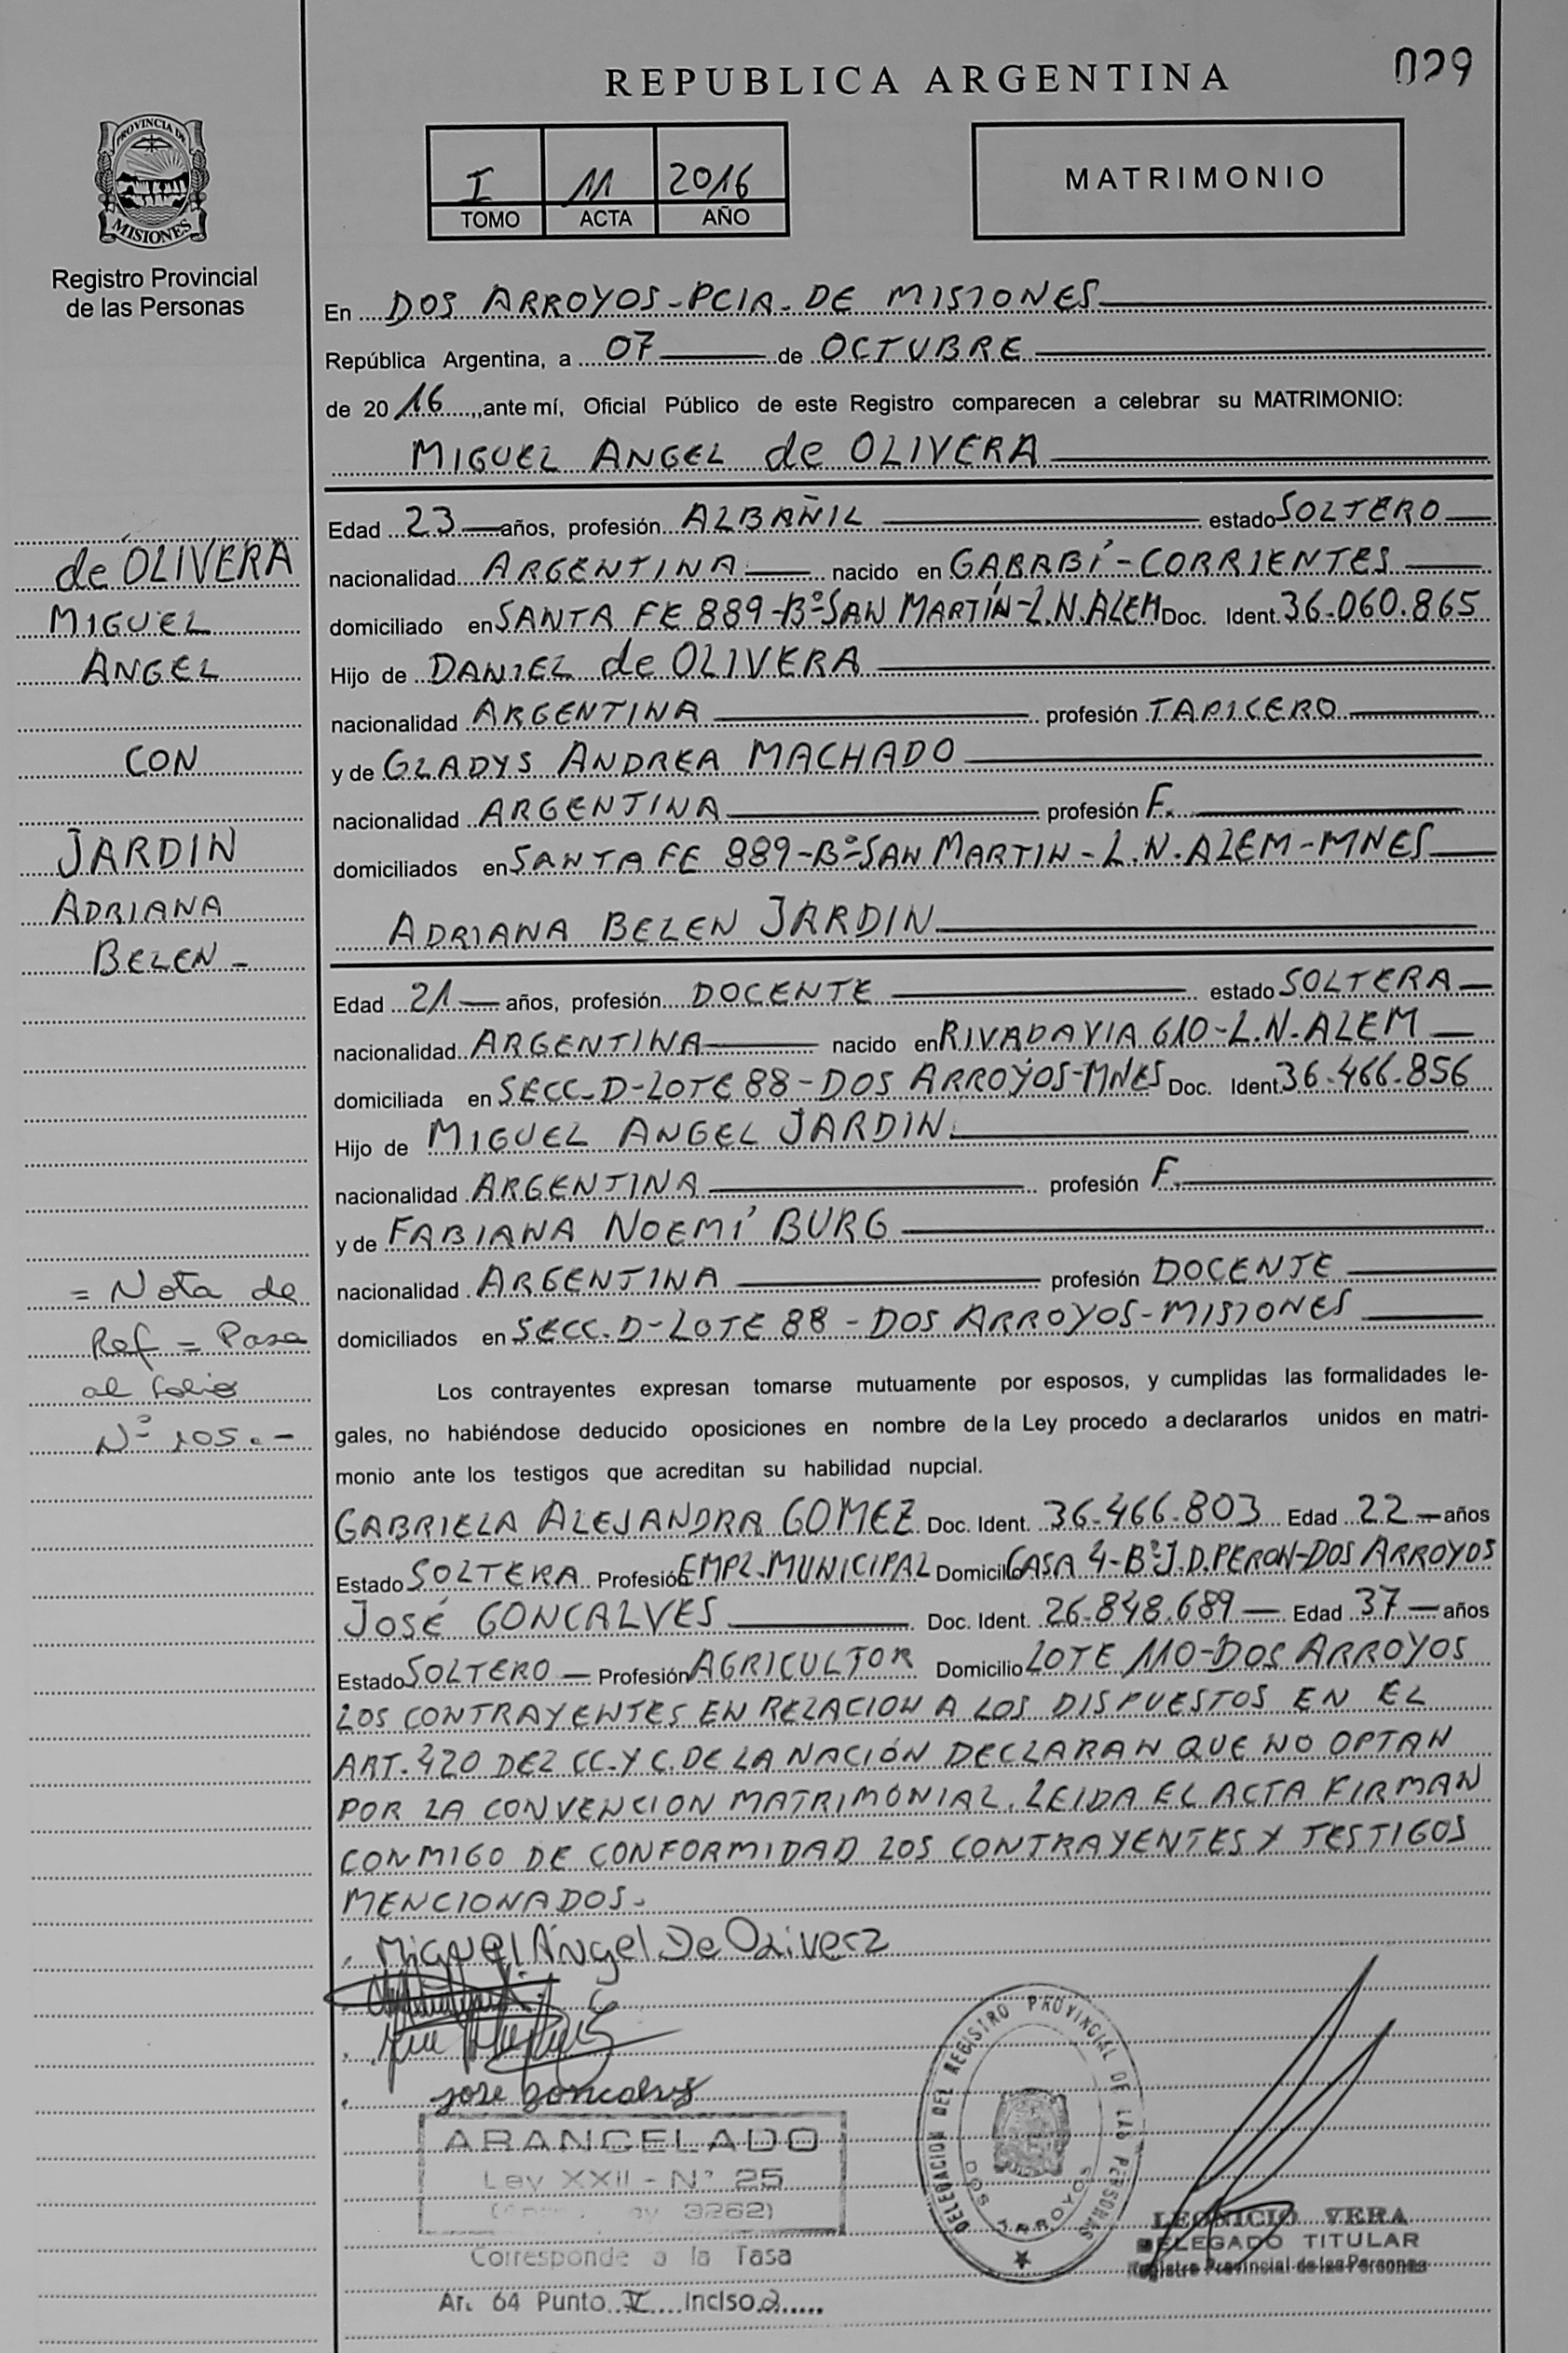 029
REPUBLICA ARGENTINA
PROVINCIA DE
MISIONES
Registro Provincial
de las Personas
I 11 2016
TOMO ACTA AÑO
MATRIMONIO
En DOS ARROYOS-PCIA-DE MISIONES
República Argentina, a 07 de OCTUBRE
de 2016, ante mí, Oficial Público de este Registro comparecen a celebrar su MATRIMONIO:
MIGUEL ANGEL de OLIVERA
Edad 23 años, profesión ALBAÑIL estado SOLTERO
nacionalidad ARGENTINA nacido en GARABÍ-CORRIENTES
domiciliado en SANTA FE 889-Bº SAN MARTÍN-L.N.ALEM Doc. Ident. 36.060.865
Hijo de DANIEL de OLIVERA
nacionalidad ARGENTINA profesión TAPICERO
y de GLADYS ANDREA MACHADO
nacionalidad ARGENTINA profesión F.
domiciliados en SANTA FE 889-Bº SAN MARTIN-L.N.ALEM-MNES
ADRIANA BELEN JARDIN
Edad 21 años, profesión DOCENTE estado SOLTERA
nacionalidad ARGENTINA nacido en RIVADAVIA 610-L.N-ALEM
domiciliada en SECC-D-LOTE 88-DOS ARROYOS-MNES Doc. Ident. 36.466.856
Hijo de MIGUEL ANGEL JARDIN
nacionalidad ARGENTINA profesión F.
y de FABIANA NOEMÍ BURG
nacionalidad ARGENTINA profesión DOCENTE
domiciliados en SECC.D-LOTE 88-DOS ARROYOS-MISIONES
Los contrayentes expresan tomarse mutuamente por esposos, y cumplidas las formalidades le-
gales, no habiéndose deducido oposiciones en nombre de la Ley procedo a declararlos unidos en matri-
monio ante los testigos que acreditan su habilidad nupcial.
GABRIELA ALEJANDRA GOMEZ Doc. Ident. 36.466.803 Edad 22 años
Estado SOLTERA Profesión EMPL-MUNICIPAL Domicilio CASA 4-Bº J.D.PERON-DOS ARROYOS
JOSÉ GONCALVES Doc. Ident. 26.848.689 Edad 37 años
Estado SOLTERO Profesión AGRICULTOR Domicilio LOTE 110-DOS ARROYOS
LOS CONTRAYENTES EN RELACION A LOS DISPUESTOS EN EL
ART.420 DEL CC.Y C. DE LA NACIÓN DECLARAN QUE NO OPTAN
POR LA CONVENCION MATRIMONIAL. LEIDA EL ACTA FIRMAN
CONMIGO DE CONFORMIDAD LOS CONTRAYENTES Y TESTIGOS
MENCIONADOS.
Miguel Ángel De Olivera
jose goncalves
de OLIVERA
MIGUEL
ANGEL
CON
JARDIN
ADRIANA
BELEN-
= Nota de
Ref = Pasa
al folio
Nº 105.-
ARANCELADO
Ley XXII - Nº 25
3262)
Corresponde a la Tasa
Ar. 64 Punto V Inciso 2
DELEGACION DEL REGISTRO PROVINCIAL DE LAS PERSONAS
DOS ARROYOS
LEONICIO VERA
DELEGADO TITULAR
Registro Provincial de las Personas